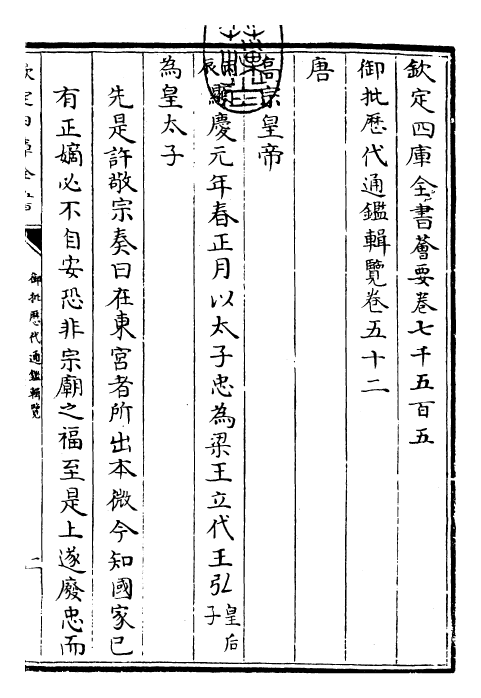 欽定四庫全書薈要卷七千五百五
御批歷代通鑑輯覽卷五十二
唐
高宗皇帝
丙辰顯慶元年春正月以太子忠為梁王立代王弘皇后子
為皇太子
先是許敬宗奏曰在東宮者所出本微今知國家已
有正嫡必不自安恐非宗廟之福至是上遂廢忠而
御批歷代通鑑輯覽
一